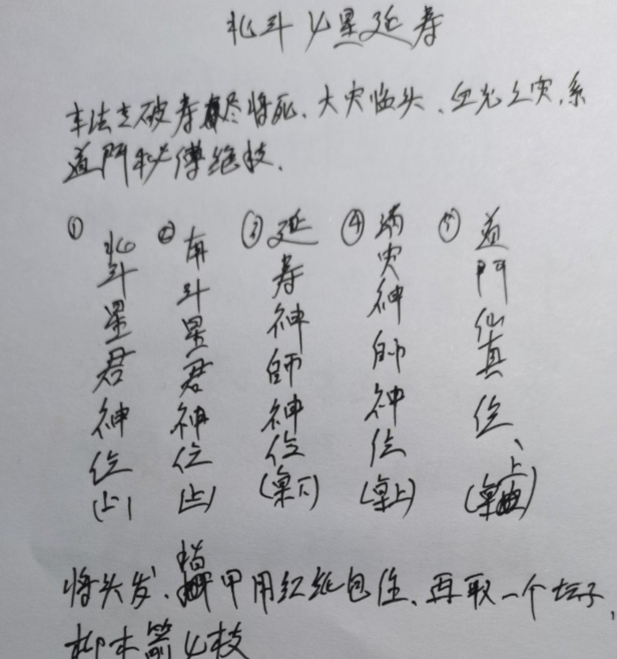 北斗七星延寿
本法专破寿尽将死、大灾临头、血光之灾,系
道門秘傳绝技.
① 北斗星君神位(上)
② 南斗星君神位(上)
③ 延寿神師神位(桌下)
④ 消灾神帥神位(桌上)
⑤ 道門仙真位、(桌上)
将头发、指甲用红纸包住、再取一个坛子,
柳木箭七枝